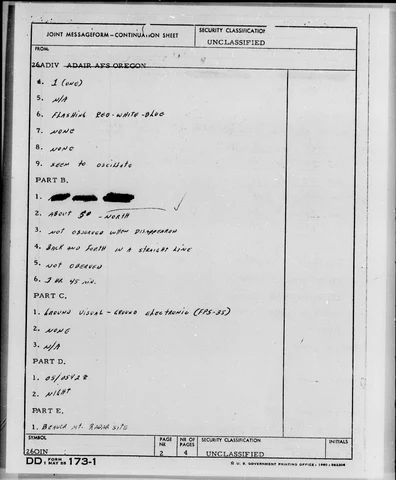 JOINT MESSAGEFORM—CONTINUATION SHEET
SECURITY CLASSIFICATION
UNCLASSIFIED
FROM
26ADIV ADAIR AFS OREGON
4. 1 (ONE)
5. N/A
6. FLASHING RED-WHITE-BLUE
7. NONE
8. NONE
9. SEEM TO OSCILLATE
PART B.
1.
2. ABOUT 50 - NORTH
3. NOT OBSERVED WHEN DISAPPEARED
4. BACK AND FORTH IN A STRAIGHT LINE
5. NOT OBERVED
6. 1 OR 45 MIN.
PART C.
1. GROUND VISUAL - GROUND ELECTRONIC (FPS-35)
2. NONE
3. N/A
PART D.
1. 05/0542Z
2. NIGHT
PART E.
1. MT. RADAR SITE
SYMBOL
26OIN
PAGE NR
2
NR OF PAGES
4
SECURITY CLASSIFICATION
UNCLASSIFIED
INITIALS
DD FORM 1 MAY 55 173-1
U. S. GOVERNMENT PRINTING OFFICE: